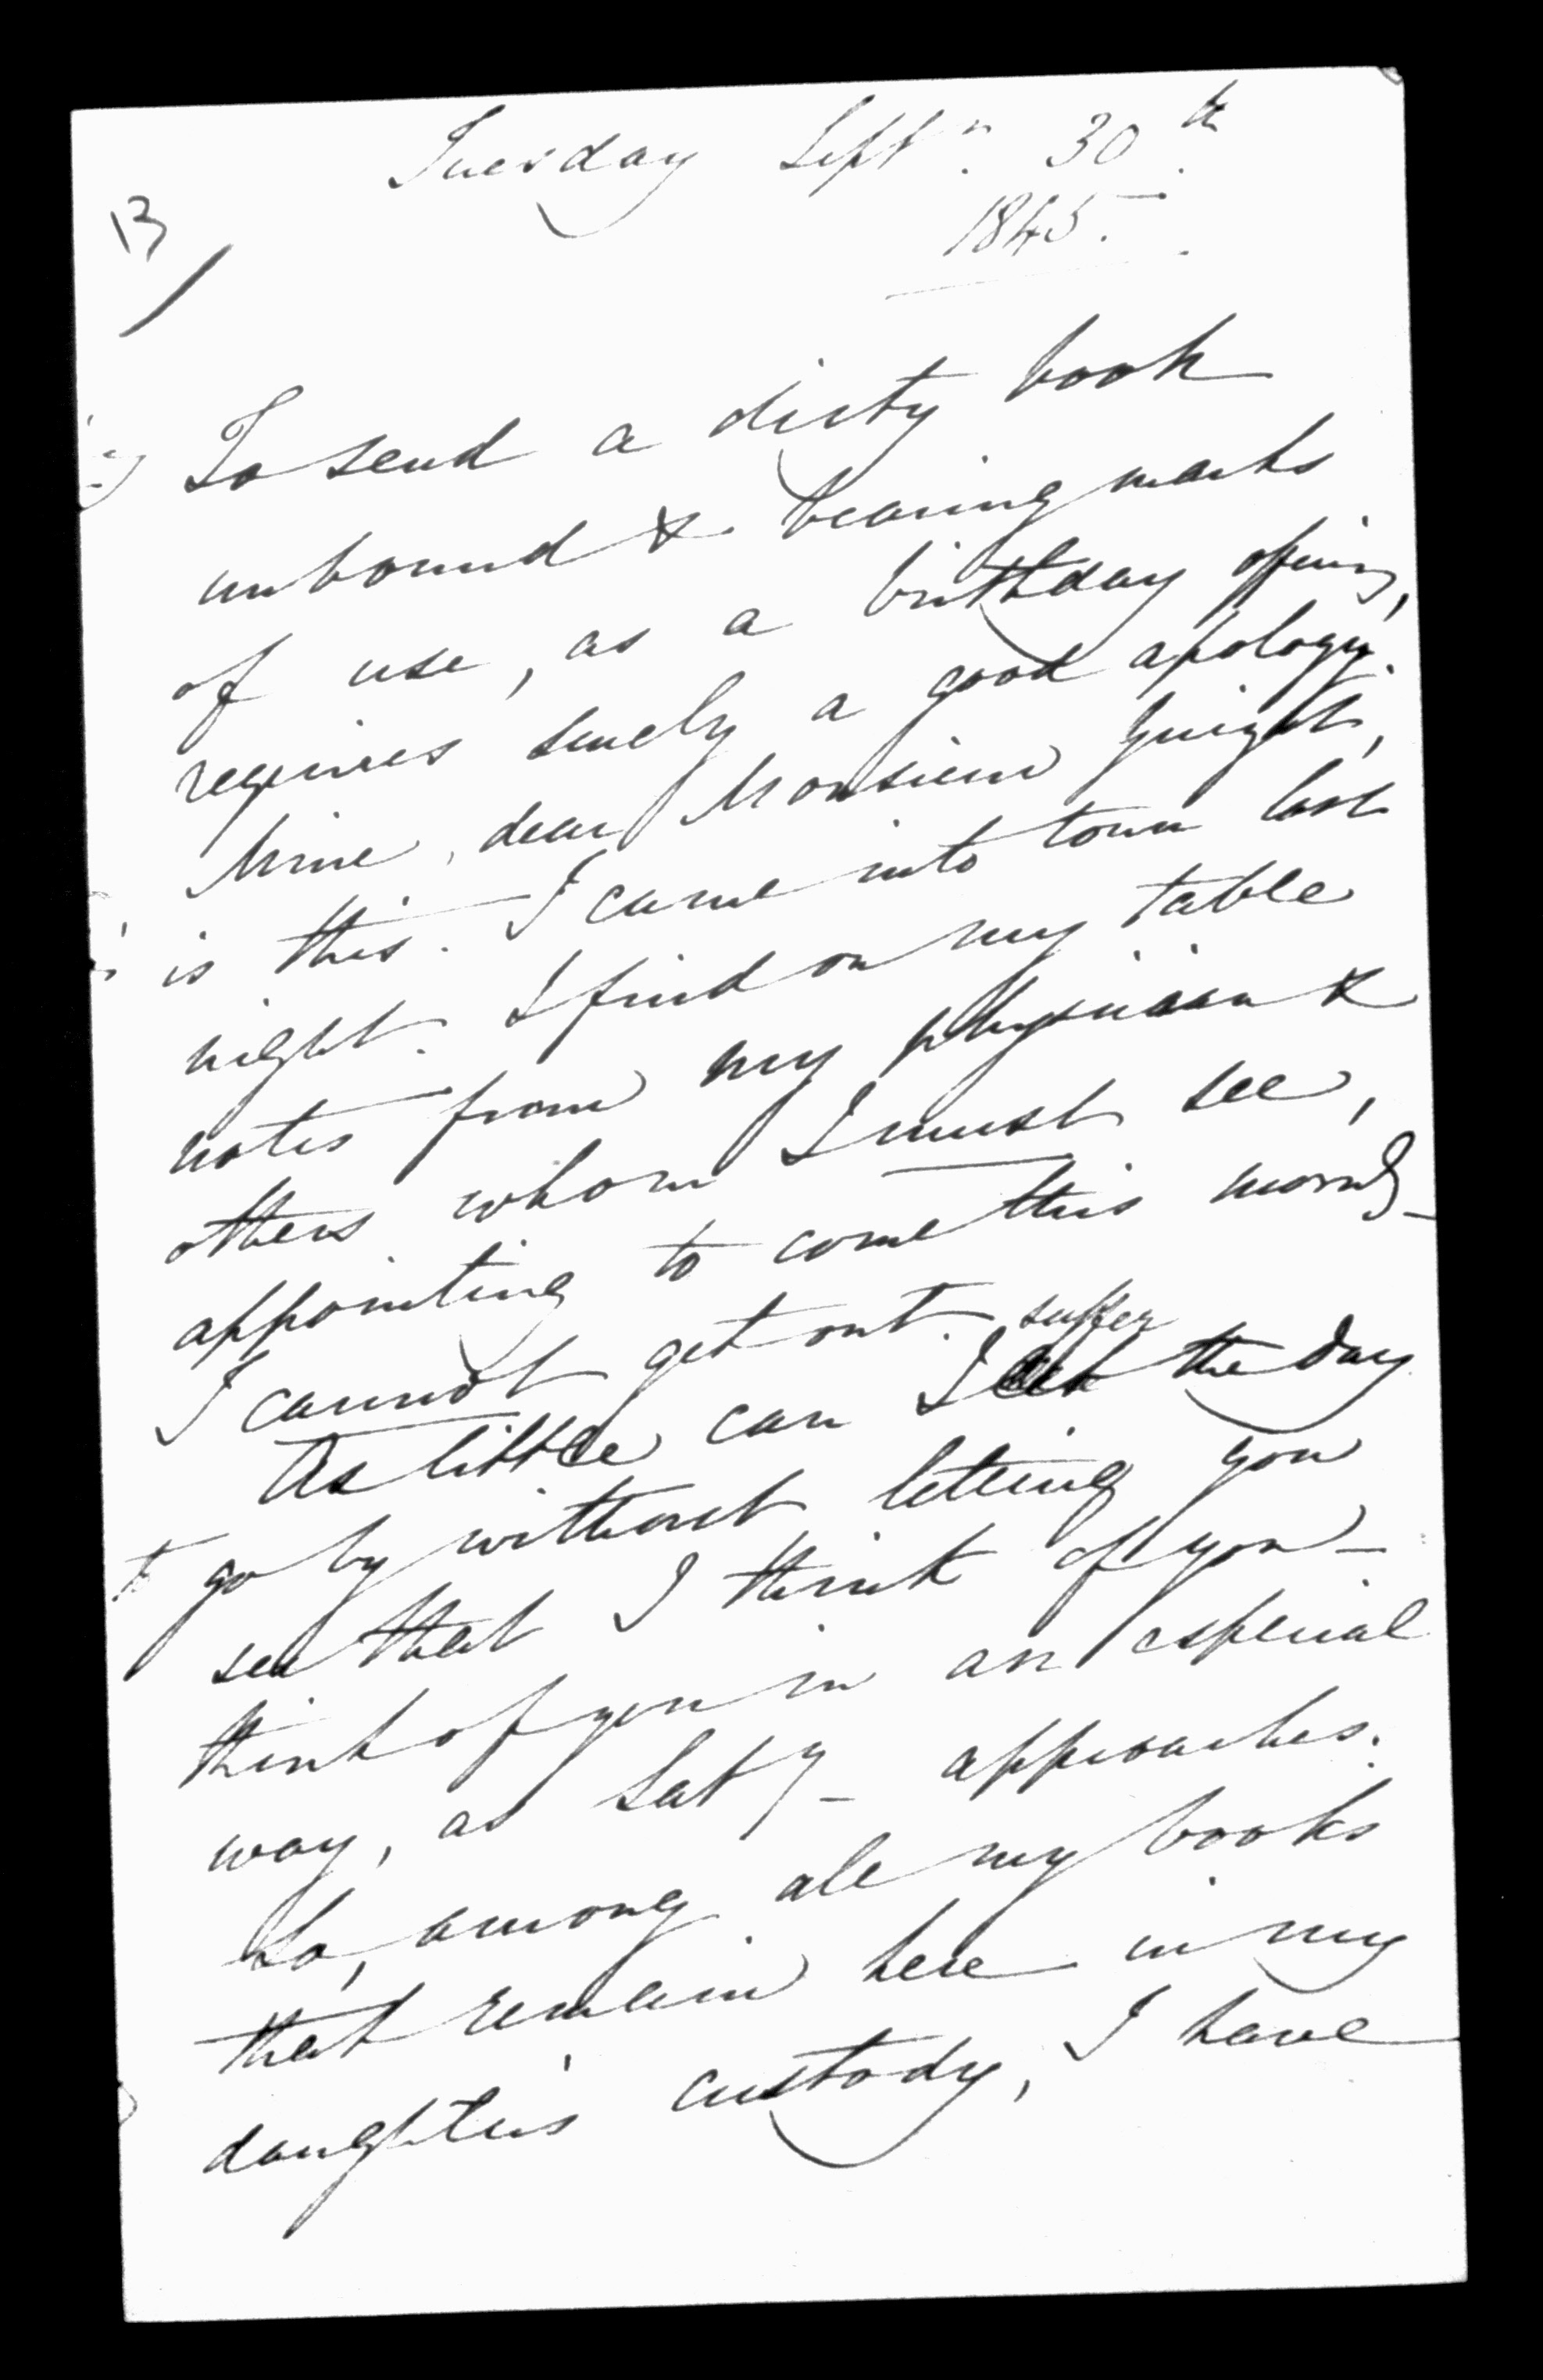 Tuesday Septr. 30th.
1845.
13
To send a dirty book
unbound & bearing marks
of use, as a birthday offering,
requires surely a good apology.
Mine, dear Monsieur
is this. I came into town last
night. I find on my table
notes from my physician &
others whom I must see,
appointing to come this morng—
I cannot get out.
suffer
As little can I the day
to go by without letting you
see that I think of you—
think of you in an especial
way, as Saty— approaches.
So, among all my books
that remain here in my
daughter's custody, I have